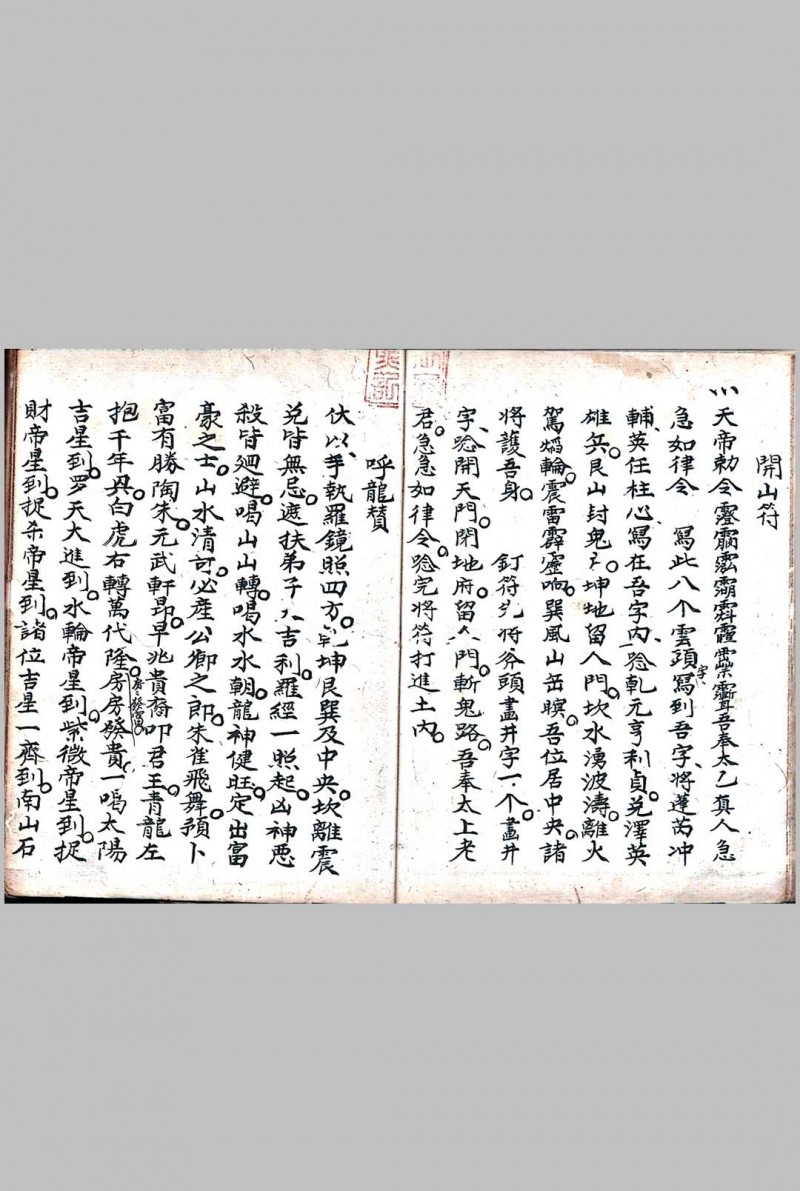 開山符
天帝勅令靈吾奉太乙真人急
急如律令 寫此八个雲頭字寫到吾字、將蓬芮冲
輔、英任柱心寫在吾字內、唸乹元亨利貞。兌澤英
雄兵。艮山封鬼。坤地留人門。坎水湧波濤。離火
駕焰輪。震雷霹靂响。巽風山岳瞑。吾位居中央。諸
將護吾身。 釘符先將斧頭畫井字一个。畫井
字、唸開天門。閉地府留人門。斬鬼路。吾奉太上老
君。急急如律令。唸完將符打進土內。
呼龍贊
伏以、手執羅鏡照四方。乾坤艮巽及中央。坎離震
兌皆無忌。遮扶弟子大吉利。羅經一照起。凶神惡
殺皆廻避。喝山山轉。喝水水朝。龍神健旺。定出富
豪之士。山水清奇。必產公卿之郎。朱雀飛舞。預卜
富有勝陶朱。元武軒昂。早兆貴裔叩君王。青龍左
抱千年丹。白虎右轉萬代隆。房房發貴。房房發富。一鳴太陽
吉星到。罗天大進到。水輪帝星到。紫微帝星到。捉
財帝星到。捉杀帝星到。諸位吉星一齊到。南山石